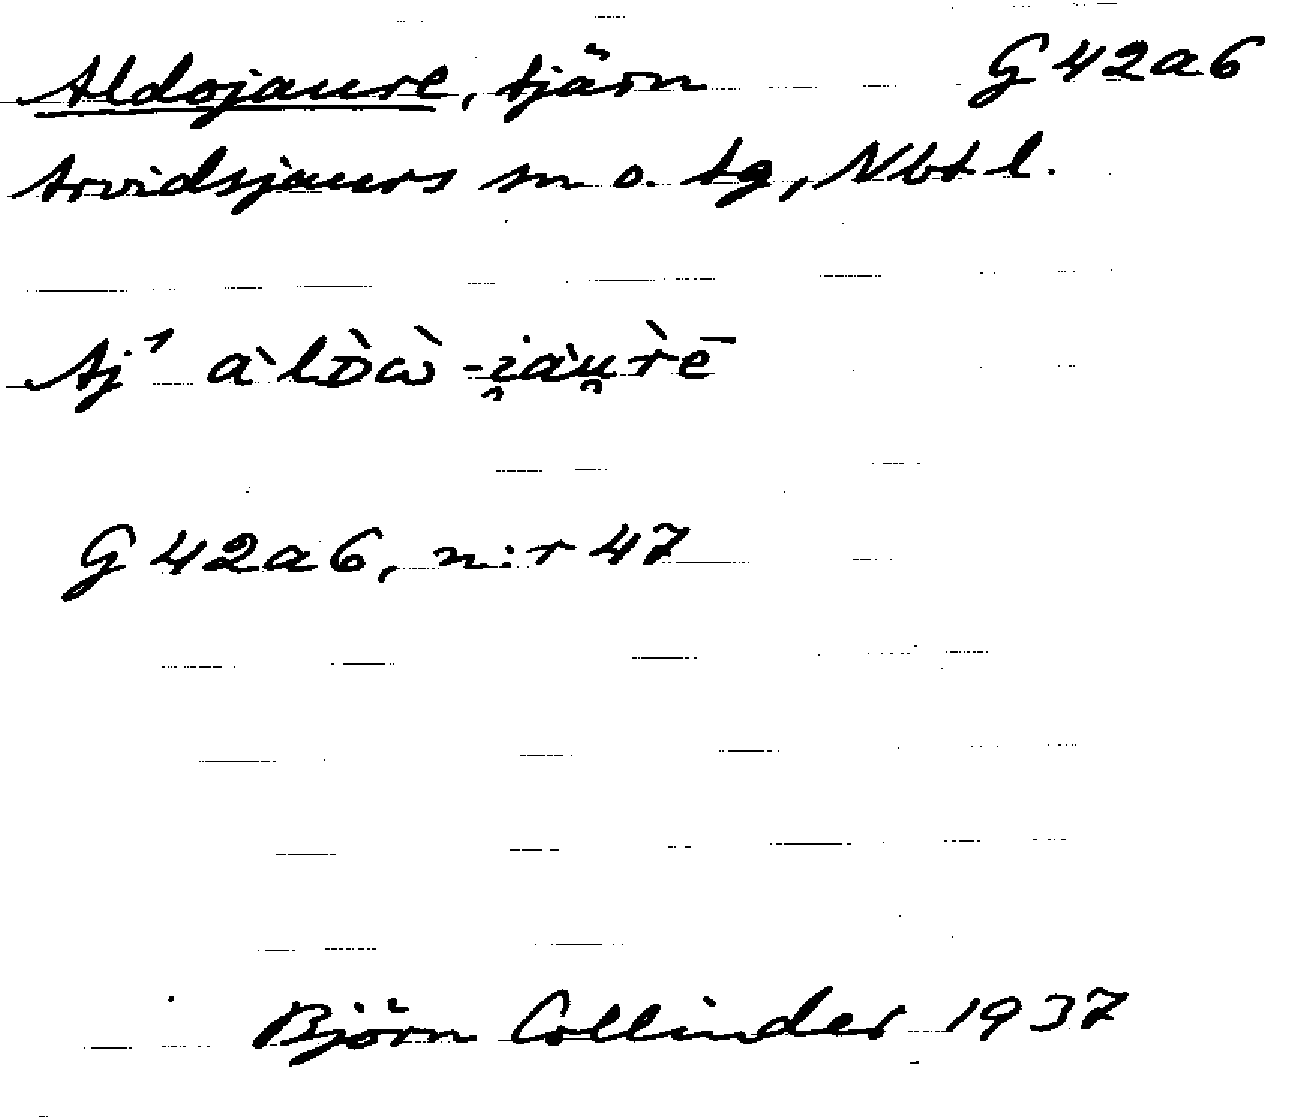 Aldojaure, tjärn G 42a6
Arvidsjaurs sn o. tg, Nbt l.
Aj¹ àlᴅὼ-i̯àu̯rē
G 42a6, n:r 47
Björn Collinder 1937